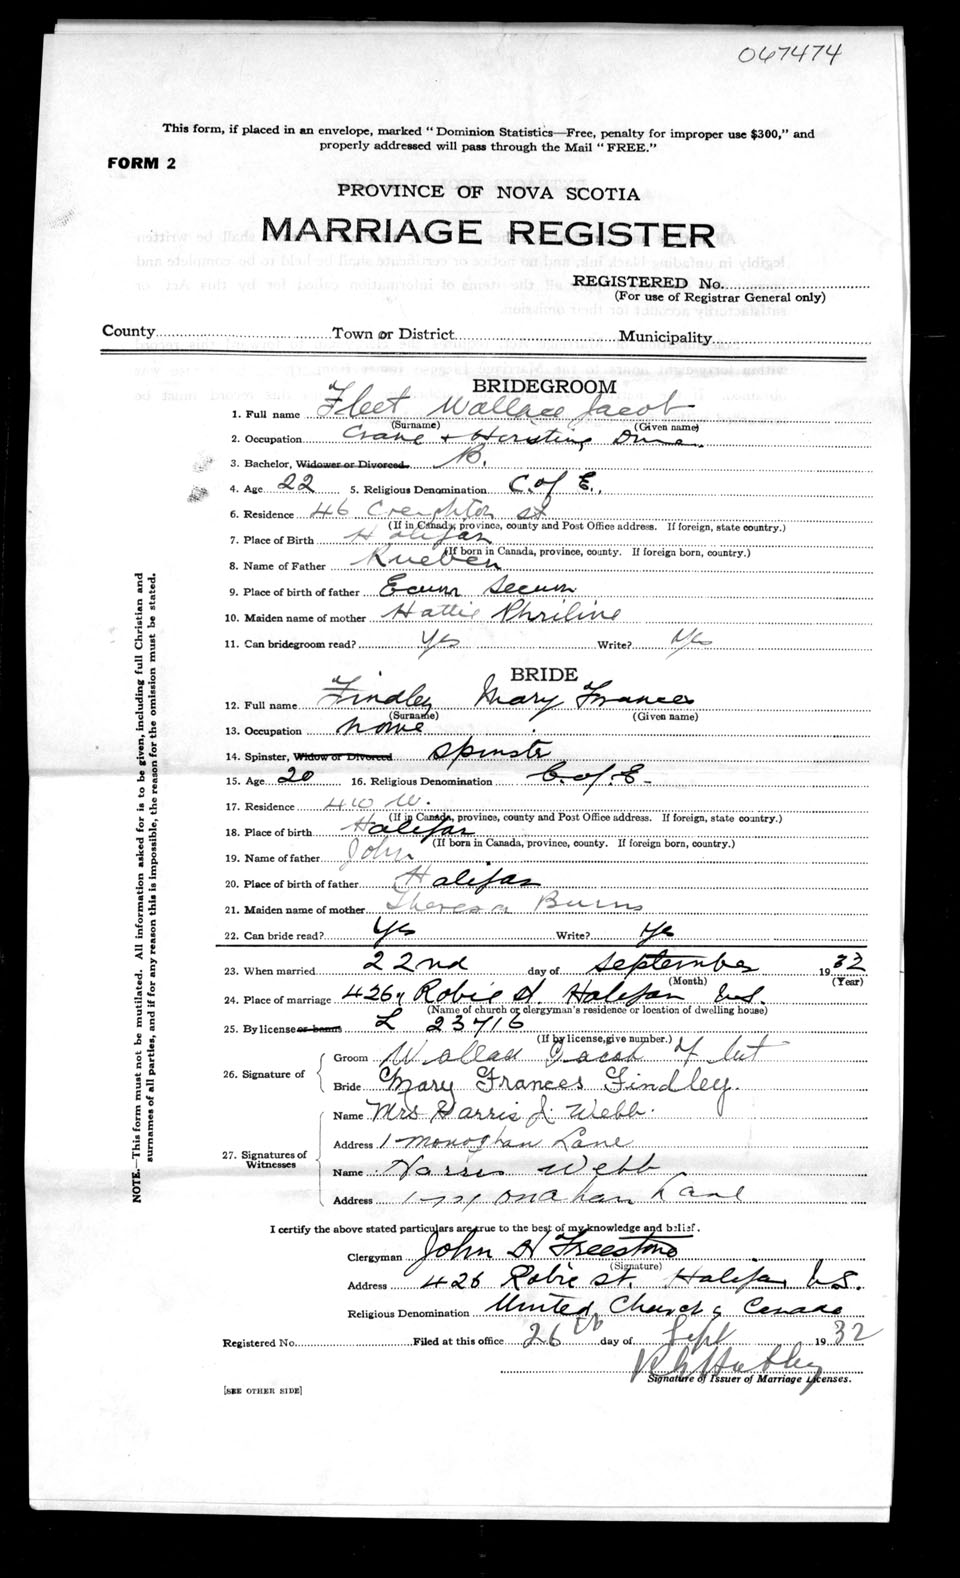 067474
This form, if placed in an envelope, marked "Dominion Statistics—Free, penalty for improper use $300," and
properly addressed will pass through the Mail "FREE."
FORM 2
PROVINCE OF NOVA SCOTIA
MARRIAGE REGISTER
REGISTERED No.
(For use of Registrar General only)
County Town or District Municipality
BRIDEGROOM
1. Full name Fleet Wallace Jacob
(Surname) (Given name)
2. Occupation Crane & Hoisting
3. Bachelor, Widower or Divorced B.
4. Age 22 5. Religious Denomination C. of E.
6. Residence 46 Creighton St
(If in Canada, province, county and Post Office address. If foreign, state country.)
7. Place of Birth Halifax
(If born in Canada, province, county. If foreign born, country.)
8. Name of Father Rueben
9. Place of birth of father Ecum Secum
10. Maiden name of mother Hattie
11. Can bridegroom read? Yes Write? Yes
BRIDE
12. Full name Findley Mary Frances
(Surname) (Given name)
13. Occupation home
14. Spinster, Widow or Divorced Spinster
15. Age 20 16. Religious Denomination C. of E
17. Residence
(If in Canada, province, county and Post Office address. If foreign, state country.)
18. Place of birth Halifax
(If born in Canada, province, county. If foreign born, country.)
19. Name of father John
20. Place of birth of father Halifax
21. Maiden name of mother Theresa Burns
22. Can bride read? Yes Write? Yes
23. When married 22nd day of September 1932
(Month) (Year)
24. Place of marriage 426 Robie St. Halifax N.S.
(Name of church or clergyman's residence or location of dwelling house)
25. By license or banns L 23716
(If by license, give number.)
26. Signature of
Groom Wallace Jacob Fleet
Bride Mary Frances Findley.
27. Signatures of Witnesses
Name Mrs Harris J. Webb.
Address 1 Monaghan Lane
Name Harris Webb
Address 1 Monahan Lane
I certify the above stated particulars are true to the best of my knowledge and belief.
Clergyman John H Freestone
(Signature)
Address 426 Robie St. Halifax N.S.
Religious Denomination United Church of Canada
Registered No. Filed at this office 26th day of Sept 1932
Signature of Issuer of Marriage Licenses.
[SEE OTHER SIDE]
NOTE.—This form must not be mutilated. All information asked for is to be given, including full Christian and
surnames of all parties, and if for any reason this is impossible, the reason for the omission must be stated.